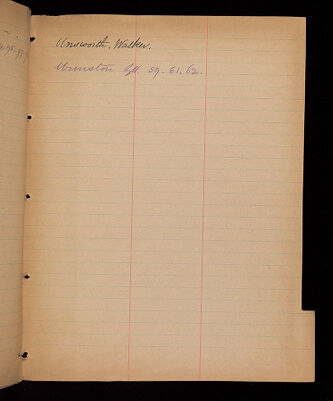 Unsworth, Walker.
Urmston 59. 61. 62.